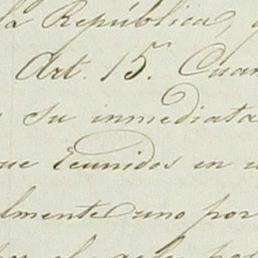 la República,
Art. 15. Cuan
su inmediata
que reunidos en u
lmente uno por